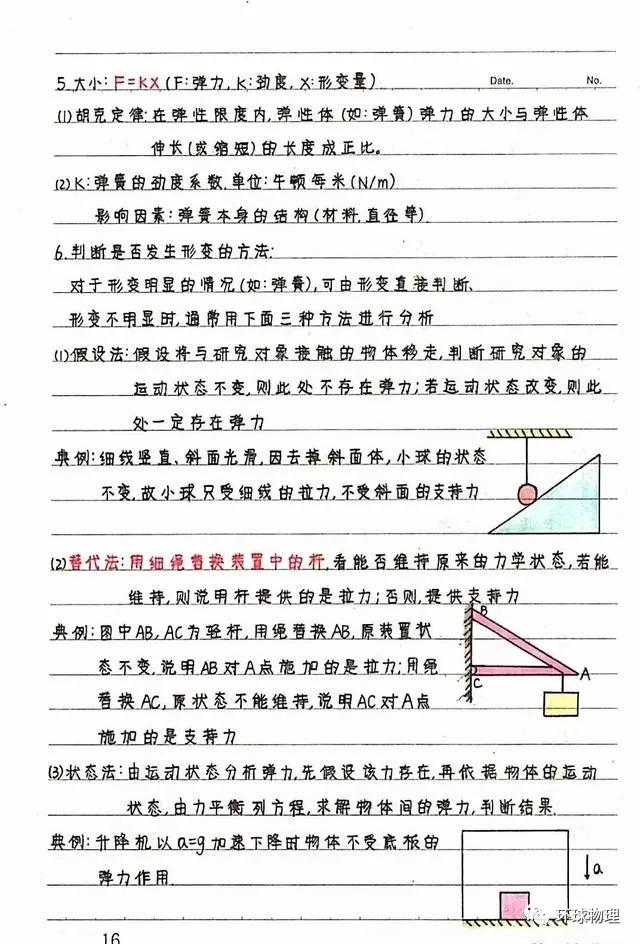 5.大小:F=KX(F:弹力,K:劲度,X:形变量)
Date.
No.
(1)胡克定律:在弹性限度内,弹性体(如:弹簧)弹力的大小与弹性体
伸长(或缩短)的长度成正比。
(2)K:弹簧的劲度系数,单位:牛顿每米(N/m)
影响因素:弹簧本身的结构(材料,直径等)
6.判断是否发生形变的方法:
对于形变明显的情况(如:弹簧),可由形变直接判断、
形变不明显时,通常用下面三种方法进行分析
(1)假设法:假设将与研究对象接触的物体移走,判断研究对象的
运动状态不变,则此处不存在弹力;若运动状态改变,则此
处一定存在弹力
典例:细线竖直、斜面光滑,因去掉斜面体,小球的状态
不变,故小球只受细线的拉力,不受斜面的支持力
(2)替代法:用细绳替换装置中的杆,看能否维持原来的力学状态,若能
维持,则说明杆提供的是拉力;否则,提供支持力
典例:图中AB,AC为轻杆,用绳替换AB,原装置状
态不变,说明AB对A点施加的是拉力;用绳
替换AC,原状态不能维持,说明AC对A点
施加的是支持力
B
C
A
(3)状态法:由运动状态分析弹力,先假设该力存在,再依据物体的运动
状态,由力平衡列方程,求解物体间的弹力,判断结果.
典例:升降机以a=g加速下降时物体不受底板的
弹力作用.
a
环球物理
16